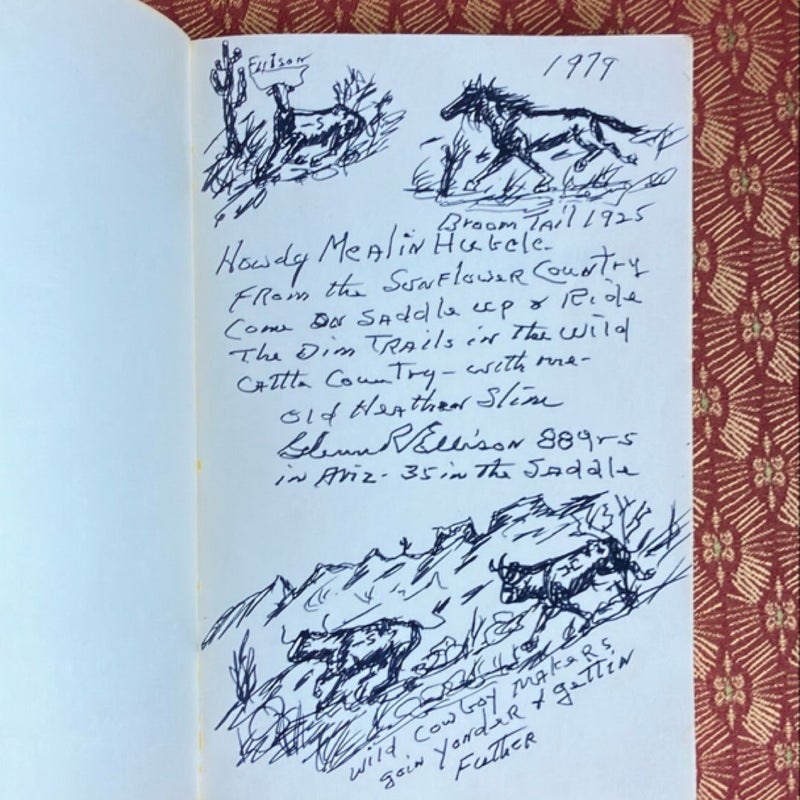 Ellison
1979
Broom Tail 1925
Howdy Mealin Hubble-
From the Sunflower Country
Come on saddle up & Ride
The Dim Trails in the Wild
Cattle Country - with me-
old Heathen Slim
Glenn R Ellison 88 yrs
in Ariz - 35 in the Saddle
-S
-S
wild Cowboy makers
goin yonder & gettin
Futher